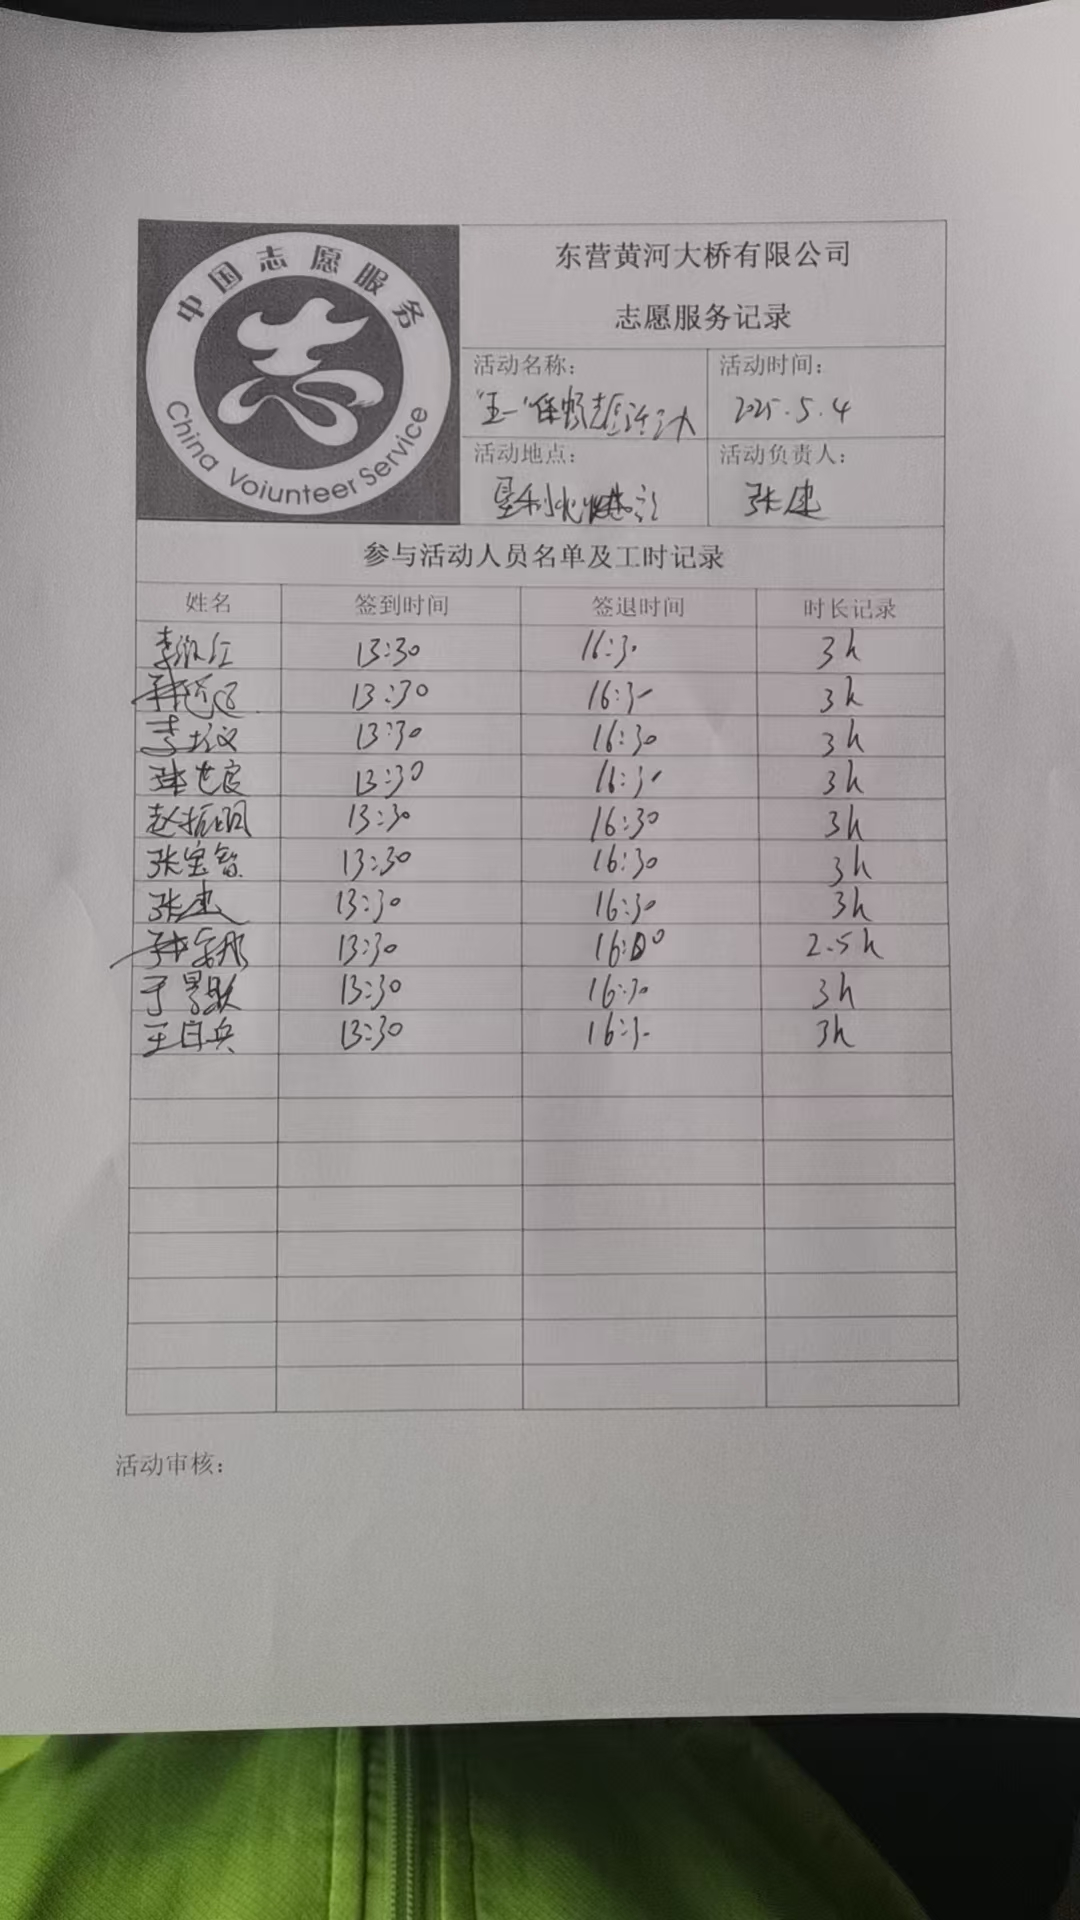 中国志愿服务
志
China Voiunteer Service
东营黄河大桥有限公司
志愿服务记录
活动名称: 活动时间:
"五一"保畅志愿活动 2025.5.4
活动地点: 活动负责人:
垦利 张建
参与活动人员名单及工时记录
姓名 签到时间 签退时间 时长记录
13:30 16:30 3h
13:30 16:30 3h
13:30 16:30 3h
13:30 16:30 3h
赵振明 13:30 16:30 3h
张宝智 13:30 16:30 3h
张建 13:30 16:30 3h
13:30 16:00 2.5h
13:30 16:30 3h
13:30 16:30 3h
活动审核: